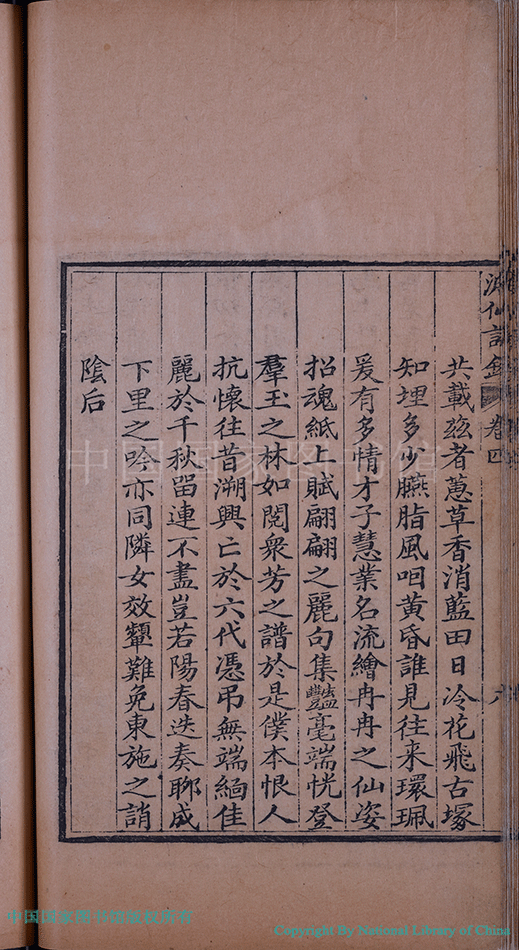 共載兹者蕙草香消藍田日冷花飛古塚
知埋多少臙脂風咽黄昏誰見往来環珮
爰有多情才子慧業名流繪冉冉之仙姿
招魂紙上賦翩翩之麗句集豔毫端恍登
羣玉之林如閱衆芳之譜於是僕本恨人
抗懷往昔溯興亡於六代憑弔無端緬佳
麗於千秋留連不盡豈若陽春迭奏聊成
下里之吟亦同隣女效顰難免東施之誚
陰后
卷四
中国国家图书馆
中国国家图书馆版权所有
Copyright By National Library of China